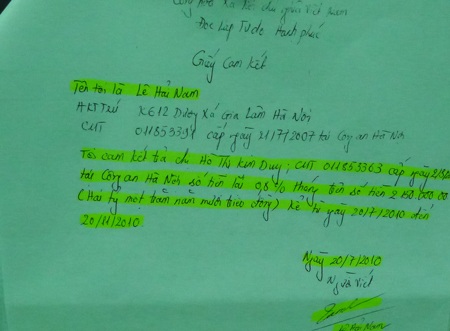 Cộng hòa xã hội chủ nghĩa Việt Nam
Độc lập Tự do Hạnh phúc
Giấy Cam kết
Tên tôi là Lê Hải Nam
HKTT Trú KE12 Dương Xá Gia Lâm Hà Nội
CMT 011853351 cấp ngày 21/7/2007 tại Công an Hà Nội
Tôi cam kết trả chị Hà Thị Kim Duy; CMT 011853363 cấp ngày
tại Công an Hà Nội số tiền lãi 0,8% tháng trên số tiền 2.150.000.00
(Hai tỷ một trăm năm mươi triệu đồng) kể từ ngày 20/7/2010 đến
20/11/2010
Ngày 20/7/2010
Người viết
Lê Hải Nam